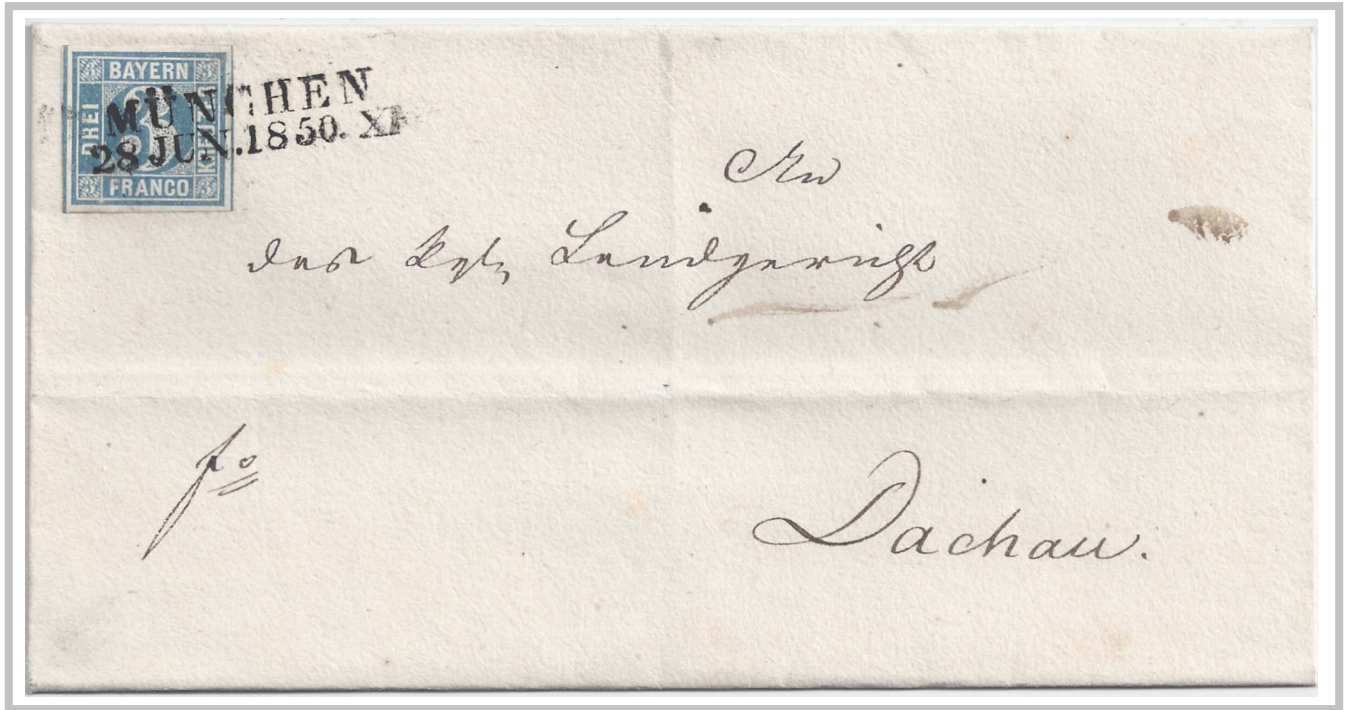 BAYERN
DREI
FRANCO
MÜNCHEN
28 JUN.1850. XI
An
das Kgl. Landgericht
fo
Dachau.